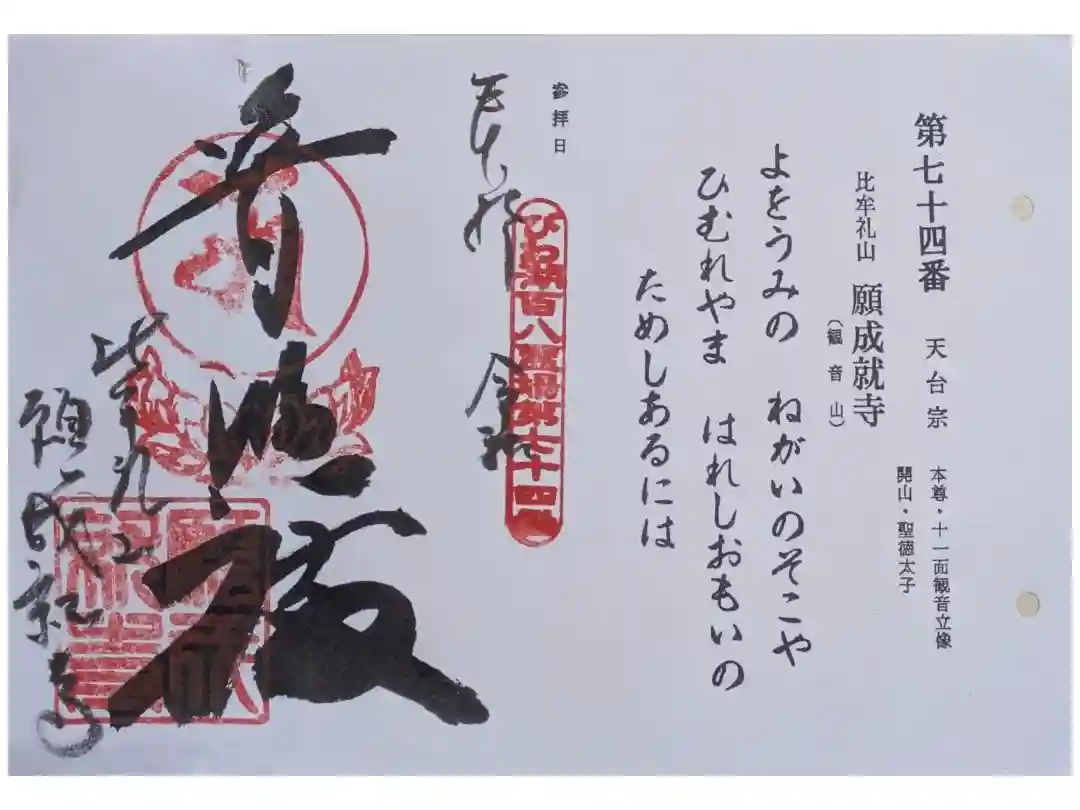 第七十四番 天台宗 本尊・十一面観音立像
開山・聖徳太子
比牟礼山 願成就寺
(観音山)
よをうみの ねがいのそこや
ひむれやま はれしおもいの
ためしあるには
参拝日
びわ湖百八霊場第七十四番
比牟礼山
願成就寺